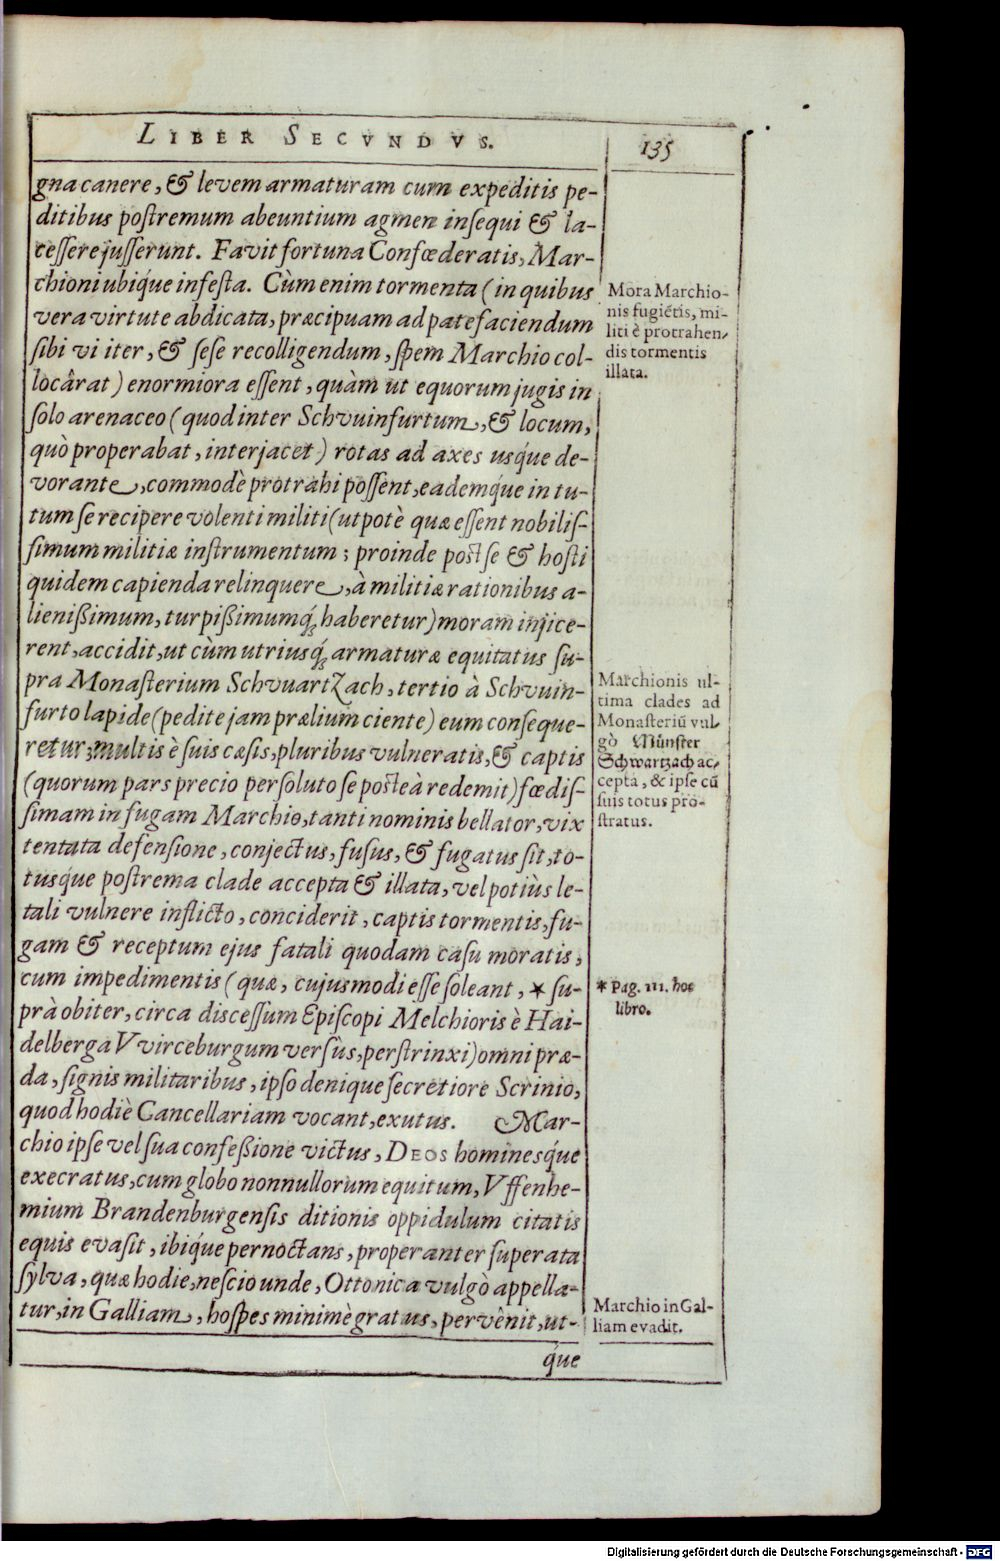 LIBER SECVNDVS.
135
gna canere, & levem armaturam cum expeditis pe-
ditibus postremum abeuntium agmen insequi & la-
cessere jusserunt. Favit fortuna Confœderatis, Mar-
chioni ubiq́ue infesta. Cùm enim tormenta (in quibus
vera virtute abdicata, præcipuam ad patefaciendum
sibi vi iter, & sese recolligendum, spem Marchio col-
locârat) enormiora essent, quàm ut equorum jugis in
solo arenaceo (quod inter Schvuinfurtum, & locum,
quò properabat, interjacet) rotas ad axes usq́ue de-
vorante, commodè protrahi possent, eademq́ue in tu-
tum se recipere volenti militi (utpotè quæ essent nobilis-
simum militiæ instrumentum; proinde post se & hosti
quidem capienda relinquere, à militiæ rationibus a-
lienißimum, turpißimumq́ꝫ haberetur) moram injice-
rent, accidit, ut cùm utriusq́ꝫ armaturæ equitatus su-
pra Monasterium Schvuartzach, tertio à Schvuin-
furto lapide (pedite jam prælium ciente) eum conseque-
retur; multis è suis cæsis, pluribus vulneratis, & captis
(quorum pars precio persoluto se posteà redemit) fœdis-
simam in fugam Marchio, tanti nominis bellator, vix
tentata defensione, conjectus, fusus, & fugatus sit, to-
tusq́ue postrema clade accepta & illata, vel potiùs le-
tali vulnere inflicto, conciderit, captis tormentis, fu-
gam & receptum ejus fatali quodam casu moratis,
cum impedimentis (quæ, cujusmodi esse soleant, * su-
prà obiter, circa discessum Episcopi Melchioris è Hai-
delberga Vvirceburgum versùs, perstrinxi) omni præ-
da, signis militaribus, ipso denique secretiore Scrinio,
quod hodiè Cancellariam vocant, exutus. Mar-
chio ipse vel sua confeßione victus, DEOS hominesq́ue
execratus, cum globo nonnullorum equitum, Vffenhe-
mium Brandenburgensis ditionis oppidulum citatis
equis evasit, ibiq́ue pernoctans, properanter superata
sylva, quæ hodie, nescio unde, Ottonica vulgò appella-
tur, in Galliam, hospes minimè gratus, pervênit, ut-
q́ue
Mora Marchio-
nis fugiẽtis, mi-
liti è protrahen-
dis tormentis
illata.
Marchionis ul-
tima clades ad
Monasteriũ vul-
gò Münster
Schwartzach ac-
cepta, & ipse cũ
suis totus pro-
stratus.
* Pag. 111. hoc
libro.
Marchio in Gal-
liam evadit.
Digitalisierung gefördert durch die Deutsche Forschungsgemeinschaft - DFG